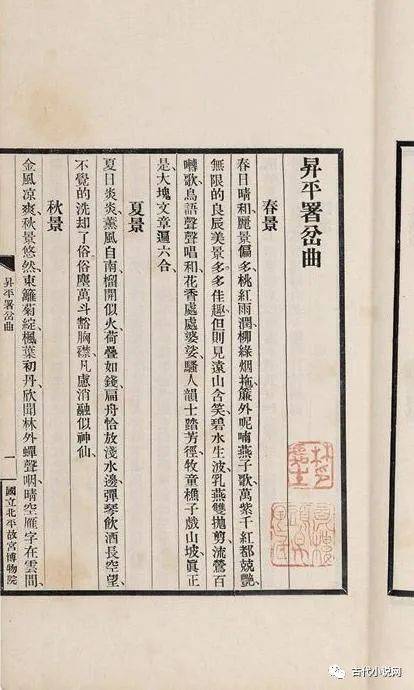 昇平署岔曲
春景
春日晴和麗景偏多、桃紅雨潤、柳綠烟拖、簾外呢喃燕子歌、萬紫千紅都競艷、
無限的良辰美景多多佳趣、但則見遠山含笑、碧水生波、乳燕雙拋剪、流鶯百
囀歌、鳥語聲聲唱和、花香處處婆娑、騷人韻士踏芳徑、牧童樵子戲山坡、眞正
是大塊文章遍六合、
夏景
夏日炎炎、薰風自南、榴開似火、荷疊如錢、扁舟恰放淺水邊、彈琴飲酒長空望、
不覺的洗却了俗、俗塵萬斗豁胸襟、凡慮消融似神仙、
秋景
金風凉爽、秋景悠然、東籬菊綻、楓葉初丹、欣聞林外蟬聲咽、晴空雁字在雲間、
昇平署岔曲
一
國立北平故宮博物院
古代小说网